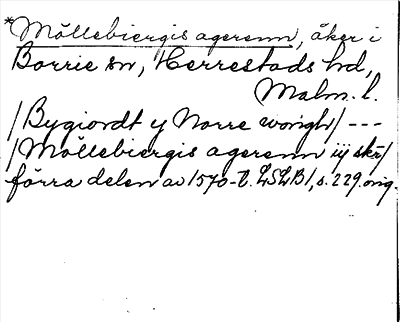 *Möllebiergis agerenn, åker i
Borrie sn, Herrestads hd,
Malm. l.
/Bygiordt y Norre wongh/ ---
/Möllebiergis agerenn iij skr/
förra delen av 1570-t. LSLB1, s. 229. orig.